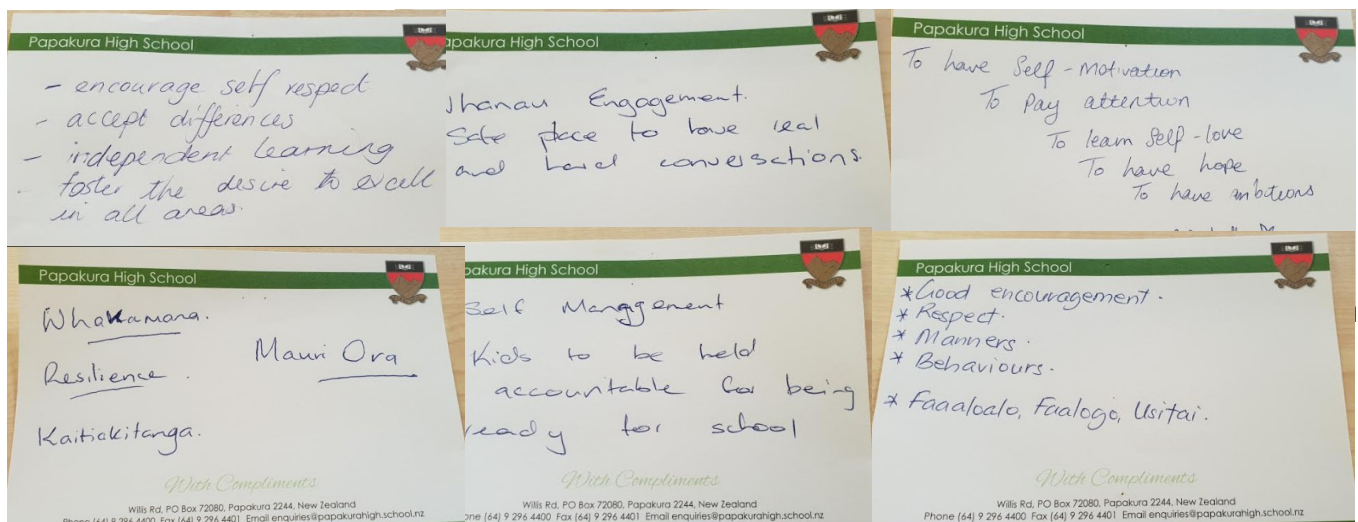 Papakura High School
- encourage self respect
- accept differences
- independent learning
- foster the desire to excell
in all areas.
apakura High School
hanau Engagement.
Safe place to have real
and hard conversations.
Papakura High School
To have Self-Motivation
To Pay attention
To learn Self-love
To have hope
To have ambitions
Papakura High School
Whakamana.
Mauri Ora
Resilience.
Kaitiakitanga.
With Compliments
Willis Rd, PO Box 72080, Papakura 2244, New Zealand
Phone (64) 9 296 4400 Fax (64) 9 296 4401 Email enquiries@papakurahigh.school.nz
pakura High School
Self Management
Kids to be held
accountable for being
ready for school
With Compliments
Willis Rd, PO Box 72080, Papakura 2244, New Zealand
one (64) 9 296 4400 Fax (64) 9 296 4401 Email enquiries@papakurahigh.school.nz
Papakura High School
*Good encouragement.
* Respect.
* Manners.
* Behaviours.
* Faaaloalo, Faalogo, Usitai.
With Compliments
Willis Rd, PO Box 72080, Papakura 2244, New Zealand
Phone (64) 9 296 4400 Fax (64) 9 296 4401 Email enquiries@papakurahigh.school.nz